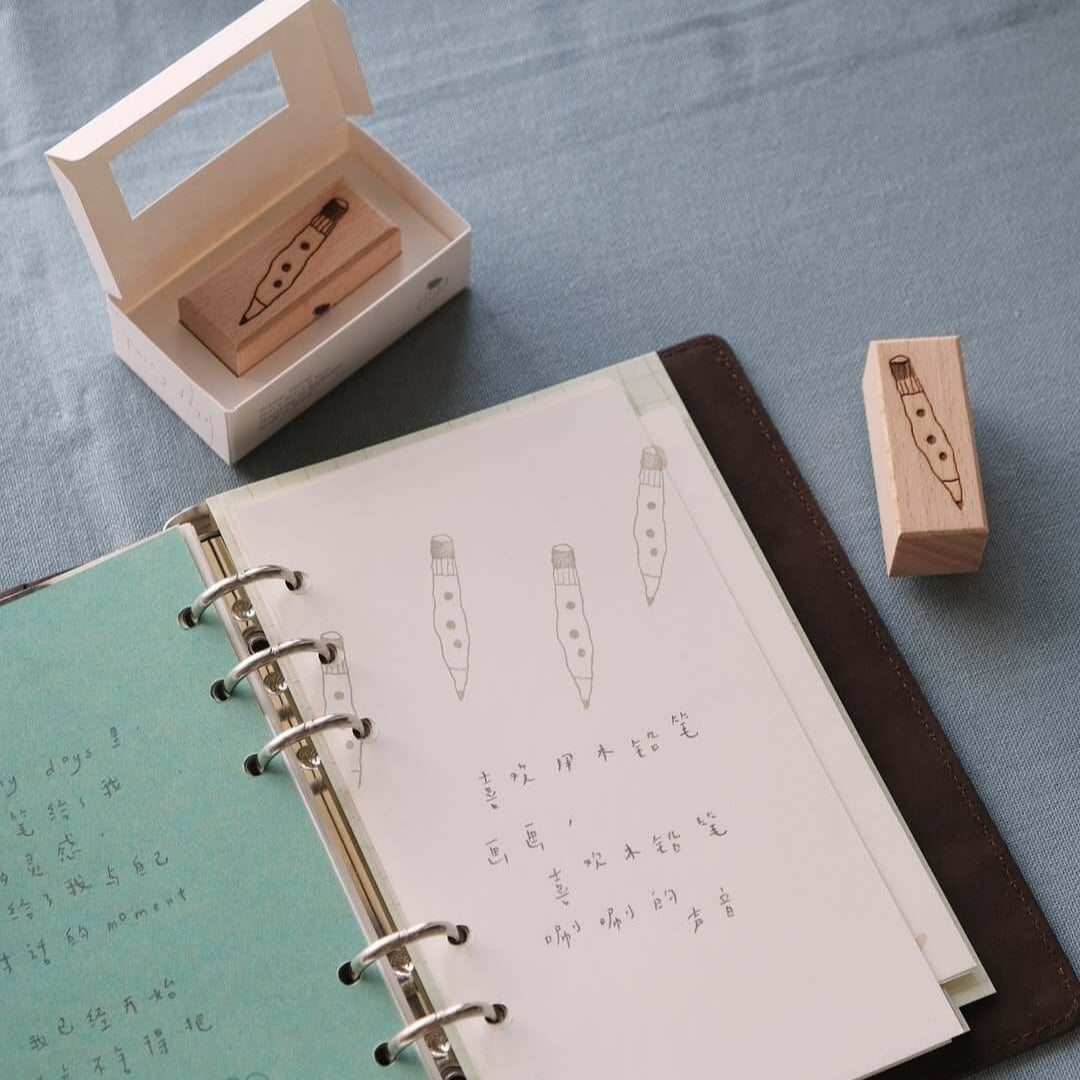 days 里.
笔 给 了 我
灵 感.
给 了 我 与 自己
话 的 moment
我 已 经 开 始
不 舍 得 把
喜 欢 用 木 铅 笔
画 画,
喜 欢 木 铅 笔
唰 唰 的
声 音